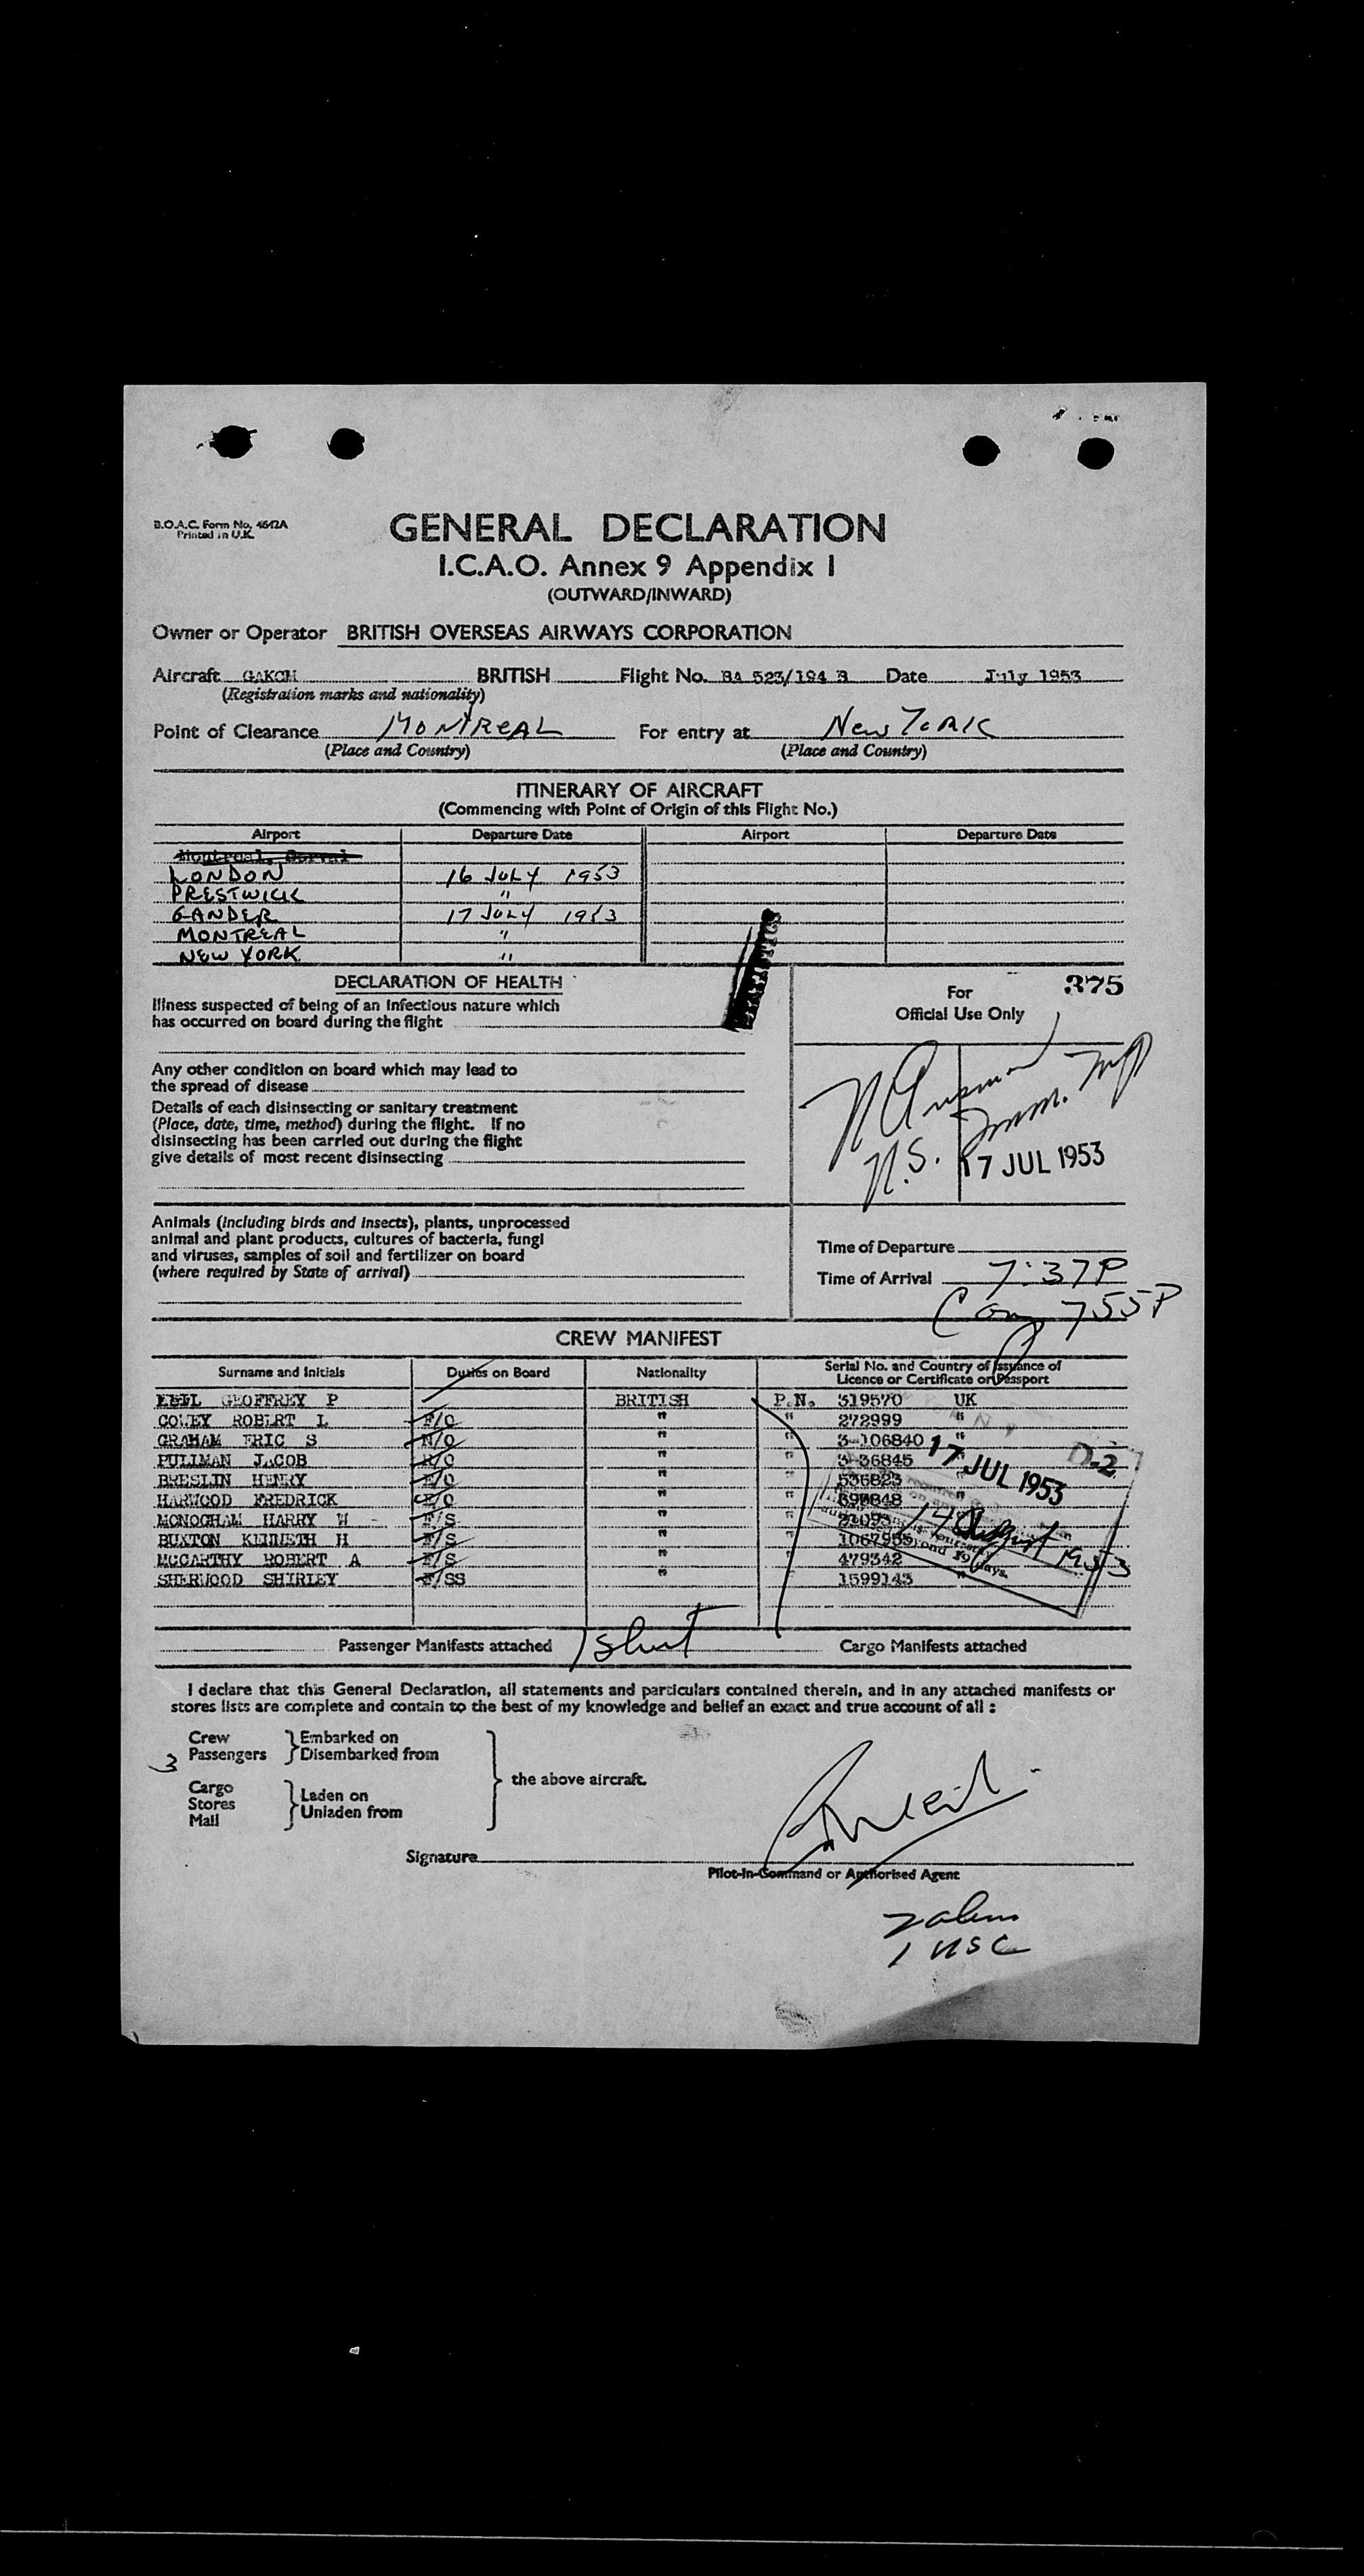 B.O.A.C. Form No. 4642A
Printed in U.K.
GENERAL DECLARATION
I.C.A.O. Annex 9 Appendix I
(OUTWARD/INWARD)
Owner or Operator BRITISH OVERSEAS AIRWAYS CORPORATION
Aircraft GAKGM BRITISH Flight No. BA 523/194 B Date July 1953
(Registration marks and nationality)
Point of Clearance MONTREAL For entry at New YORK
(Place and Country) (Place and Country)
ITINERARY OF AIRCRAFT
(Commencing with Point of Origin of this Flight No.)
Airport Departure Date Airport Departure Date
Montreal, Dorval
LONDON 16 JULY 1953
PRESTWICK "
GANDER 17 JULY 1953
MONTREAL "
NEW YORK "
DECLARATION OF HEALTH
Illness suspected of being of an infectious nature which
has occurred on board during the flight
Any other condition on board which may lead to
the spread of disease
Details of each disinsecting or sanitary treatment
(Place, date, time, method) during the flight. If no
disinsecting has been carried out during the flight
give details of most recent disinsecting
For 375
Official Use Only
N.S. Imm. Insp
17 JUL 1953
Animals (including birds and insects), plants, unprocessed
animal and plant products, cultures of bacteria, fungi
and viruses, samples of soil and fertilizer on board
(where required by State of arrival)
Time of Departure
Time of Arrival 7:37P
755P
CREW MANIFEST
Surname and Initials Duties on Board Nationality Serial No. and Country of Issuance of
Licence or Certificate or Passport
GEOFFREY P BRITISH P.N. 319570 UK
COVEY ROBERT L F/O " " 272999 "
GRAHAM ERIC S N/O " " 3-106840 "
PULIMAN JACOB R/O " " 3-36845
BRESLIN HENRY E/O " " 536823 "
HARWOOD FREDRICK E/O " "
MONOGHAM HARRY W F/S " "
BUXTON KENNETH H F/S " " 1067955
MCCARTHY ROBERT A F/S " " 479342
SHERWOOD SHIRLEY F/SS " " 1599143 "
17 JUL 1953
D-2
14 August 1953
Passenger Manifests attached 1 sheet Cargo Manifests attached
I declare that this General Declaration, all statements and particulars contained therein, and in any attached manifests or
stores lists are complete and contain to the best of my knowledge and belief an exact and true account of all :
Crew Embarked on
3 Passengers Disembarked from
the above aircraft.
Cargo
Stores Laden on
Mail Unladen from
Signature
Pilot-in-Command or Authorised Agent
2 aliens
1 USC